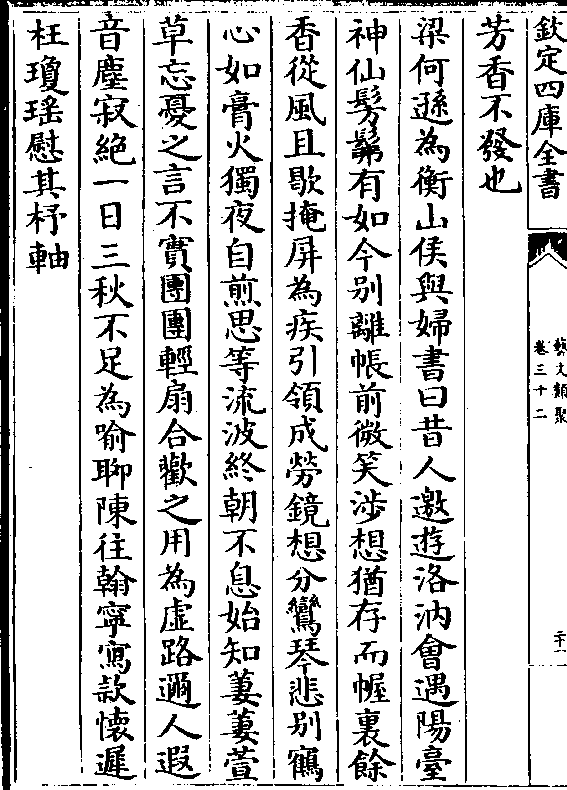 欽定四庫全書
藝文類聚
卷三十二
二十二
芳香不發也
梁何遜為衡山侯與婦書曰昔人遨遊洛汭會遇陽臺
神仙髣髴有如今别離帳前微笑涉想猶存而幄裏餘
香從風且歇掩屏為疾引領成勞鏡想分鸞琴悲别鶴
心如膏火獨夜自煎思等流波終朝不息始知萋萋萱
草忘憂之言不實團團輕扇合歡之用為虚路邇人遐
音塵寂絶一日三秋不足為喻聊陳往翰寧寫款懷遲
枉瓊瑶慰其杼軸